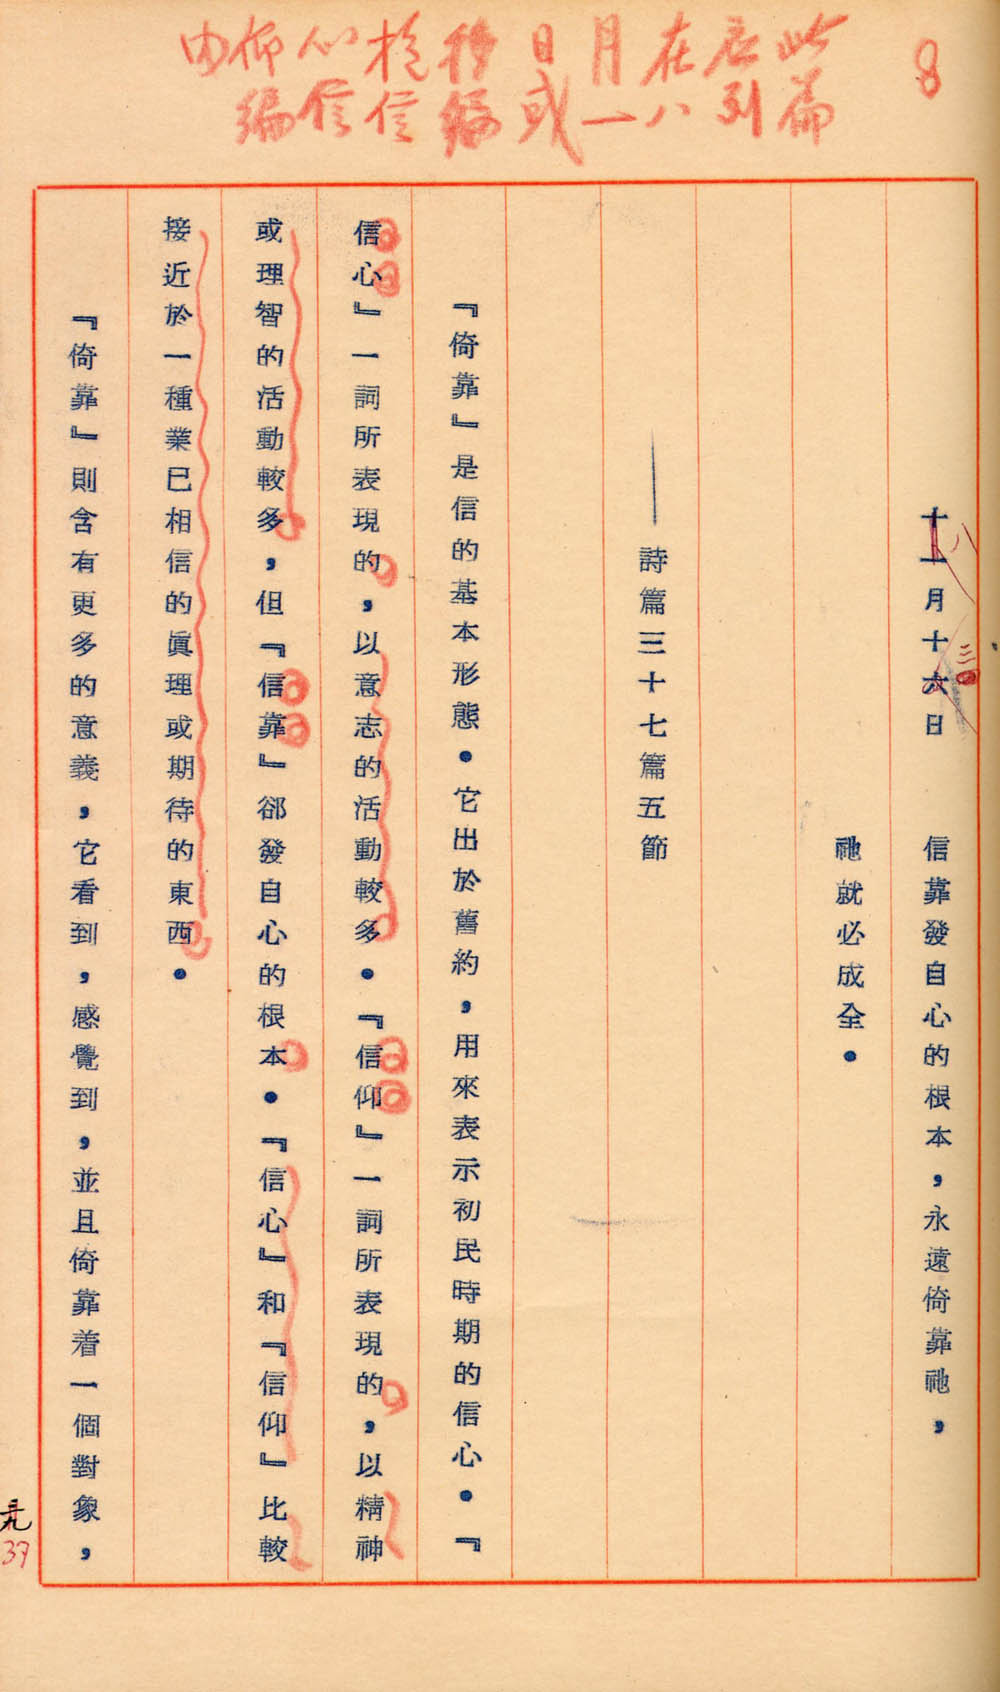 8
此篇
应列
在八
月一
日或
移編
於信
心信
仰編
内
十一月十六日　信靠發自心的根本，永遠倚靠祂，
八
三
祂就必成全。
——詩篇三十七篇五節
『倚靠』是信的基本形態。它出於舊約，用來表示初民時期的信心。『
信心』一詞所表現的，以意志的活動較多。『信仰』一詞所表現的，以精神
或理智的活動較多，但『信靠』郤發自心的根本。『信心』和『信仰』比較
接近於一種業已相信的眞理或期待的東西。
『倚靠』則含有更多的意義，它看到，感覺到，並且倚靠着一個對象，